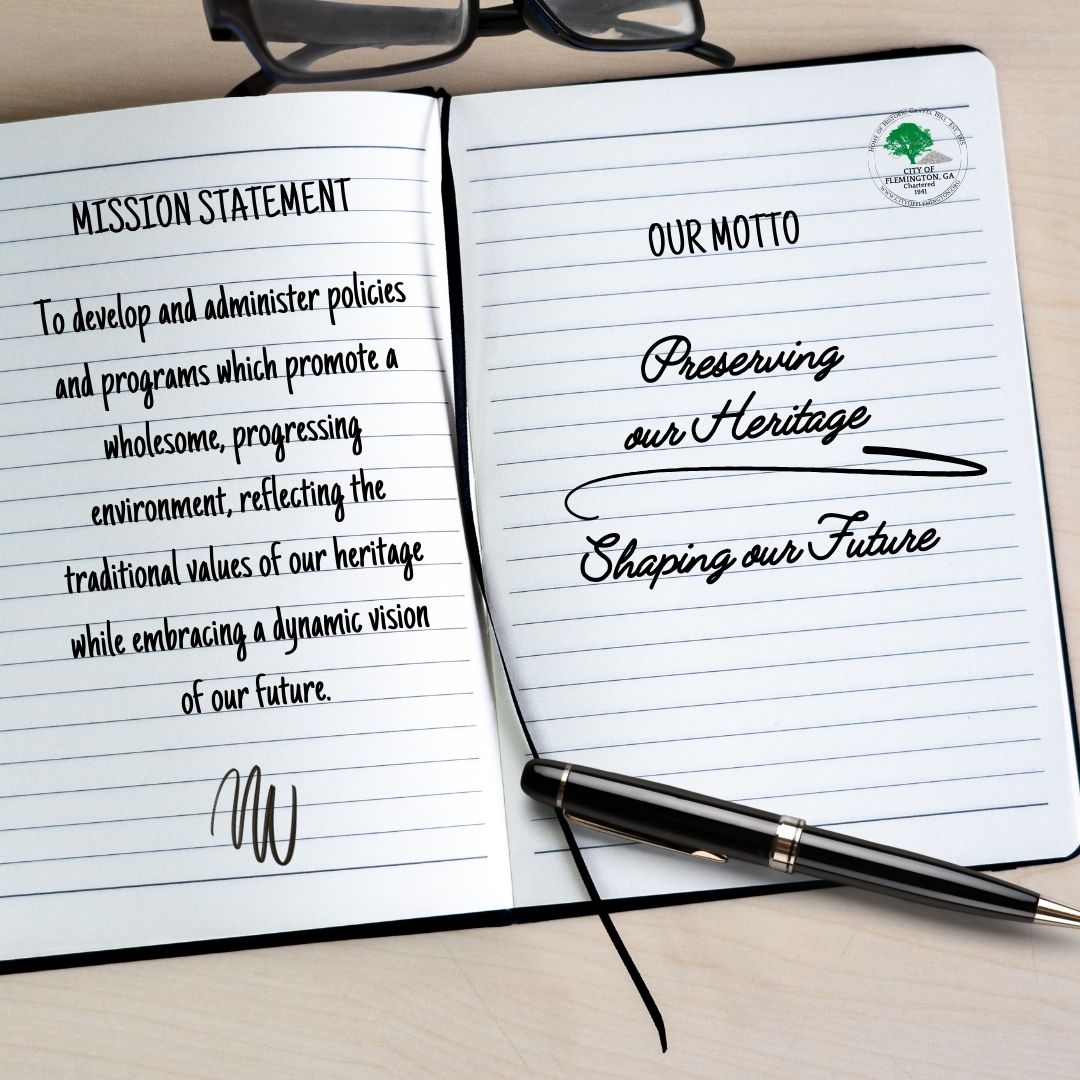 MISSION STATEMENT
To develop and administer policies
and programs which promote a
wholesome, progressing
environment, reflecting the
traditional values of our heritage
while embracing a dynamic vision
of our future.
HOME OF HISTORIC GRAVEL HILL
CITY OF
FLEMINGTON, GA
Chartered
1941
WWW.CITYOFFLEMINGTON.ORG
OUR MOTTO
Preserving
our Heritage
Shaping our Future